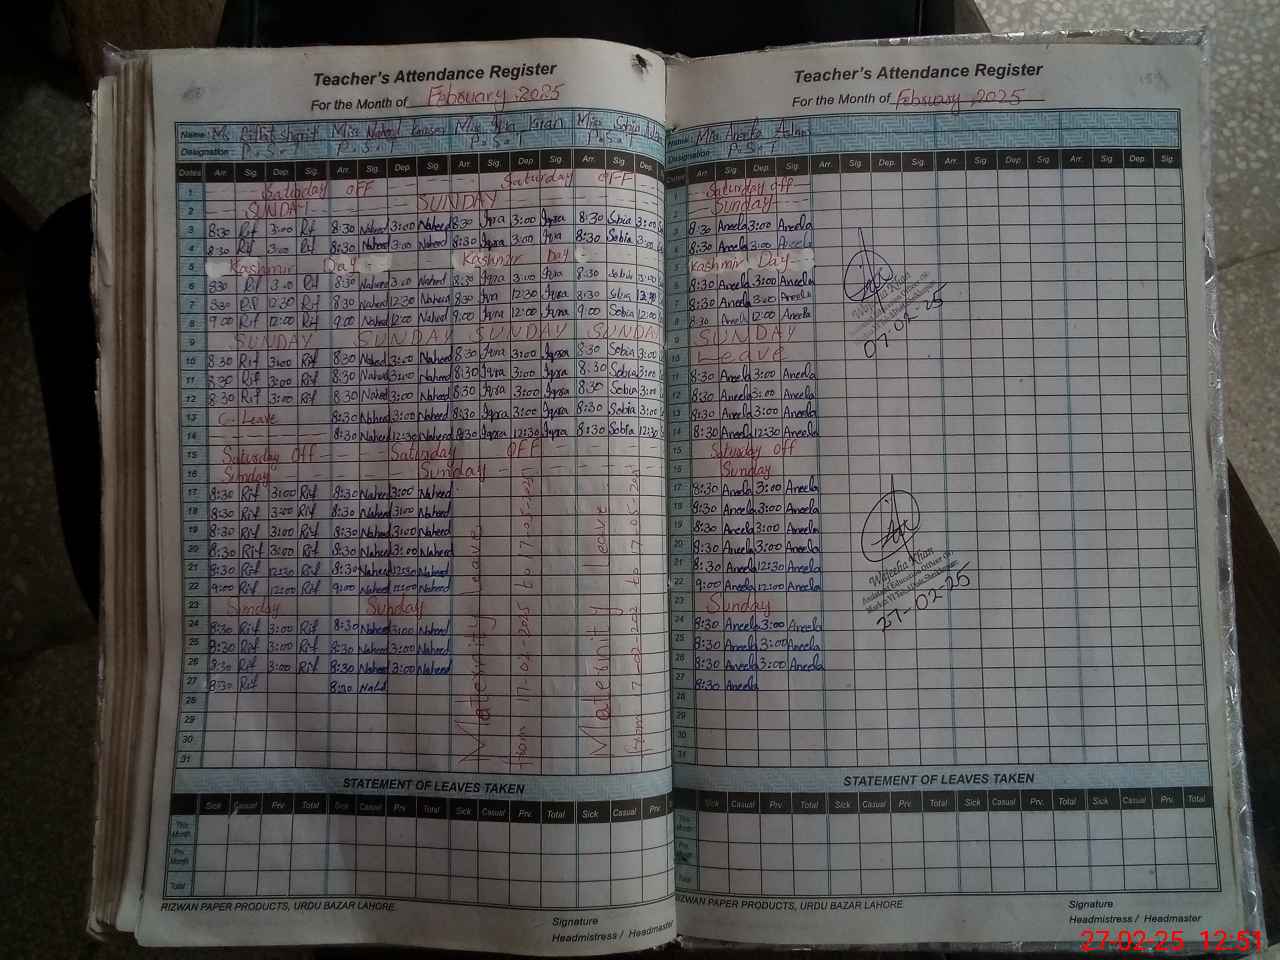 Teacher's Attendance Register
For the Month of February 2025
Name: Ms. Riffat Sharif Miss Naheed Kausar Miss Iqra Kiran Miss Sobia
Designation P.S.T P.S.T P.S.T P.S.T
Dates Arr. Sig. Dep. Sig. Arr. Sig. Dep. Sig. Arr. Sig. Dep. Sig. Arr. Sig. Dep.
1 Saturday OFF Saturday OFF
2 SUNDAY SUNDAY
3 8:30 Rif 3:00 Rif 8:30 Naheed 3:00 Naheed 8:30 Iqra 3:00 Iqra 8:30 Sobia 3:00
4 8:30 Rif 3:00 Rif 8:30 Naheed 3:00 Naheed 8:30 Iqra 3:00 Iqra 8:30 Sobia 3:00
5 Kashmir Day Kashmir Day
6 8:30 Rif 3:00 Rif 8:30 Naheed 3:00 Naheed 8:30 Iqra 3:00 Iqra 8:30 Sobia 3:00
7 8:30 Rif 12:30 Rif 8:30 Naheed 12:30 Naheed 8:30 Iqra 12:30 Iqra 8:30 Sobia 12:30
8 9:00 Rif 12:00 Rif 9:00 Naheed 12:00 Naheed 9:00 Iqra 12:00 Iqra 9:00 Sobia 12:00
9 SUNDAY SUNDAY SUNDAY SUNDAY
10 8:30 Rif 3:00 Rif 8:30 Naheed 3:00 Naheed 8:30 Iqra 3:00 Iqra 8:30 Sobia 3:00
11 8:30 Rif 3:00 Rif 8:30 Naheed 3:00 Naheed 8:30 Iqra 3:00 Iqra 8:30 Sobia 3:00
12 8:30 Rif 3:00 Rif 8:30 Naheed 3:00 Naheed 8:30 Iqra 3:00 Iqra 8:30 Sobia 3:00
13 C. Leave 8:30 Naheed 3:00 Naheed 8:30 Iqra 3:00 Iqra 8:30 Sobia 3:00
14 8:30 Naheed 12:30 Naheed 8:30 Iqra 12:30 Iqra 8:30 Sobia 12:30
15 Saturday Off Saturday OFF
16 Sunday Sunday
17 8:30 Rif 3:00 Rif 8:30 Naheed 3:00 Naheed
18 8:30 Rif 3:00 Rif 8:30 Naheed 3:00 Naheed
19 8:30 Rif 3:00 Rif 8:30 Naheed 3:00 Naheed
20 8:30 Rif 3:00 Rif 8:30 Naheed 3:00 Naheed
21 8:30 Rif 12:30 Rif 8:30 Naheed 12:30 Naheed
22 9:00 Rif 12:00 Rif 9:00 Naheed 12:00 Naheed
23 Sunday Sunday
24 8:30 Rif 3:00 Rif 8:30 Naheed 3:00 Naheed
25 8:30 Rif 3:00 Rif 8:30 Naheed 3:00 Naheed
26 8:30 Rif 3:00 Rif 8:30 Naheed 3:00 Naheed
27 8:30 Rif 8:30
28
29
30
31
Maternity Leave
from 17-02-2025 to 17-05-2025
Maternity Leave
from 17-02-202 to 17-05-202
STATEMENT OF LEAVES TAKEN
Sick Casual Prv. Total Sick Casual Prv. Total Sick Casual Prv. Total Sick Casual Prv.
This Month
Prv. Month
Total
RIZWAN PAPER PRODUCTS, URDU BAZAR LAHORE.
Signature
Headmistress / Headmaster
Teacher's Attendance Register
For the Month of February 2025
Name: Miss Aneela Aslam
Designation P.S.T
Dates Arr. Sig. Dep. Sig. Arr. Sig. Dep. Sig. Arr. Sig. Dep. Sig. Arr. Sig. Dep. Sig.
1 Saturday off
2 Sunday
3 8:30 Aneela 3:00 Aneela
4 8:30 Aneela 3:00 Aneela
5 Kashmir Day
6 8:30 Aneela 3:00 Aneela
7 8:30 Aneela Aneela
8 8:30 Aneela 12:00 Aneela
9 SUNDAY
10 Leave
11 8:30 Aneela 3:00 Aneela
12 8:30 Aneela 3:00 Aneela
13 8:30 Aneela 3:00 Aneela
14 8:30 Aneela 12:30 Aneela
15 Saturday off
16 Sunday
17 8:30 Aneela 3:00 Aneela
18 8:30 Aneela 3:00 Aneela
19 8:30 Aneela 3:00 Aneela
20 8:30 Aneela 3:00 Aneela
21 8:30 Aneela 12:30 Aneela
22 9:00 Aneela 12:00 Aneela
23 Sunday
24 8:30 Aneela 3:00 Aneela
25 8:30 Aneela 3:00 Aneela
26 8:30 Aneela 3:00 Aneela
27 8:30 Aneela
28
29
30
31
07-02-25
Wajeeha Khan
Assistant Education Officer
27-02-25
STATEMENT OF LEAVES TAKEN
Sick Casual Prv. Total Sick Casual Prv. Total Sick Casual Prv. Total Sick Casual Prv. Total
This Month
Prv. Month
Total
RIZWAN PAPER PRODUCTS, URDU BAZAR LAHORE.
Signature
Headmistress / Headmaster
27-02-25 12:51